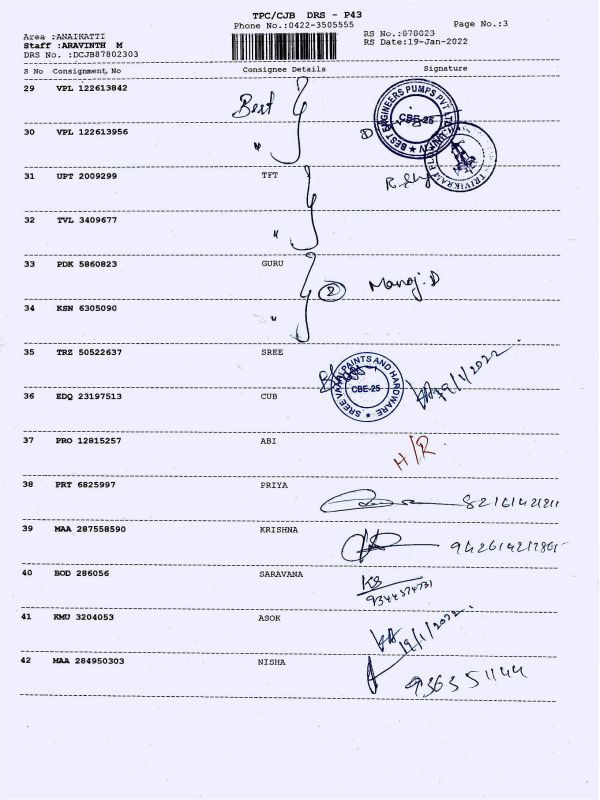 TPC/CJB DRS - P43
Phone No.:0422-3505555
Page No.:3
Area :ANAIKATTI
RS No.:070023
Staff :ARAVINTH M
RS Date:19-Jan-2022
DRS No. :DCJB87802303
S No Consignment No Consignee Details Signature
29 VPL 122613842
Best
BEST ENGINEERS PUMPS PVT LTD
CBE-25
30 VPL 122613956
"
TRIVIKRAM
31 UPT 2009299 TFT
32 TVL 3409677
"
33 PDK 5860823 GURU
2 Manoj.D
34 KSN 6305090
"
35 TRZ 50522637 SREE
PAINTS AND HARDWARE
CBE-25
19/1/2022
36 EDQ 23197513 CUB
37 PRO 12815257 ABI
H/R
38 PRT 6825997 PRIYA
39 MAA 287558590 KRISHNA
40 BOD 286056 SARAVANA
KS
41 KMU 3204053 ASOK
19/1/2022
42 MAA 284950303 NISHA